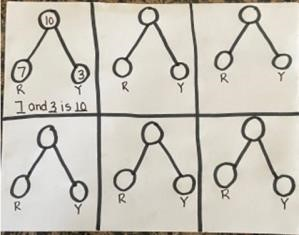 10
7 3
R Y
7 and 3 is 10
R Y
R Y
R Y
R Y
R Y